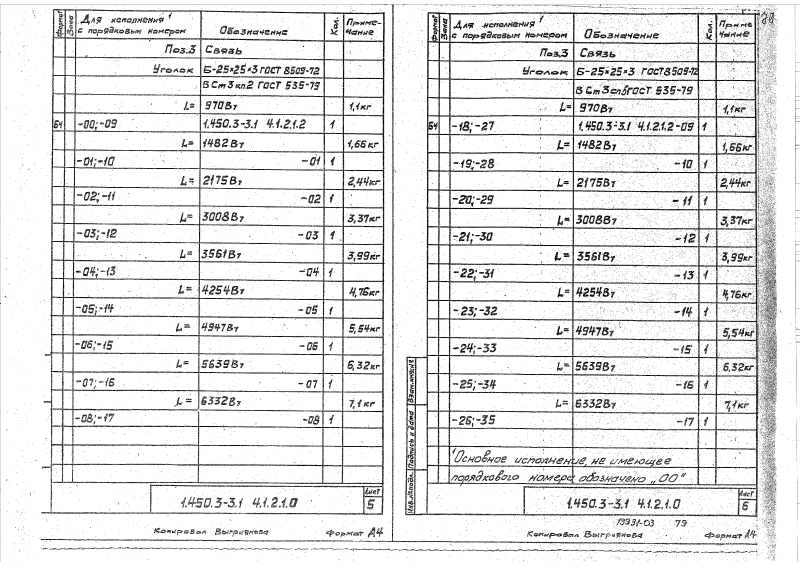 Формат Зона Для исполнения¹ с порядковым номером Обозначение Кол. Примечание
Поз.3 Связь
Уголок Б-25×25×3 ГОСТ 8509-72
ВСт3кп2 ГОСТ 535-79
L= 970Вт 1,1кг
БЧ -00;-09 1.450.3-3.1 4.1.2.1.2 1
L= 1482Вт 1,66кг
-01;-10 -01 1
L= 2175Вт 2,44кг
-02;-11 -02 1
L= 3008Вт 3,37кг
-03;-12 -03 1
L= 3561Вт 3,99кг
-04;-13 -04 1
L= 4254Вт 4,76кг
-05;-14 -05 1
L= 4947Вт 5,54кг
-06;-15 -06 1
L= 5639Вт 6,32кг
-07;-16 -07 1
L= 6332Вт 7,1кг
-08;-17 -08 1
1.450.3-3.1 4.1.2.1.0 Лист 5
Копировал Выгриянова Формат А4
Формат Зона Для исполнения¹ с порядковым номером Обозначение Кол. Приме чание
Поз.3 Связь
Уголок Б-25×25×3 ГОСТ 8509-72
ВСт3сп5 ГОСТ 535-79
L= 970Вт 1,1кг
БЧ -18;-27 1.450.3-3.1 4.1.2.1.2-09 1
L= 1482Вт 1,66кг
-19;-28 -10 1
L= 2175Вт 2,44кг
-20;-29 -11 1
L= 3008Вт 3,37кг
-21;-30 -12 1
L= 3561Вт 3,99кг
-22;-31 -13 1
L= 4254Вт 4,76кг
-23;-32 -14 1
L= 4947Вт 5,54кг
-24;-33 -15 1
L= 5639Вт 6,32кг
-25;-34 -16 1
L= 6332Вт 7,1кг
-26;-35 -17 1
¹Основное исполнение, не имеющее
порядкового номера обозначено „00"
Инв.№подл. Подпись и дата Взам.инв.№
1.450.3-3.1 4.1.2.1.0 Лист 6
19991-03 79
Копировал Выгриянова Формат А4